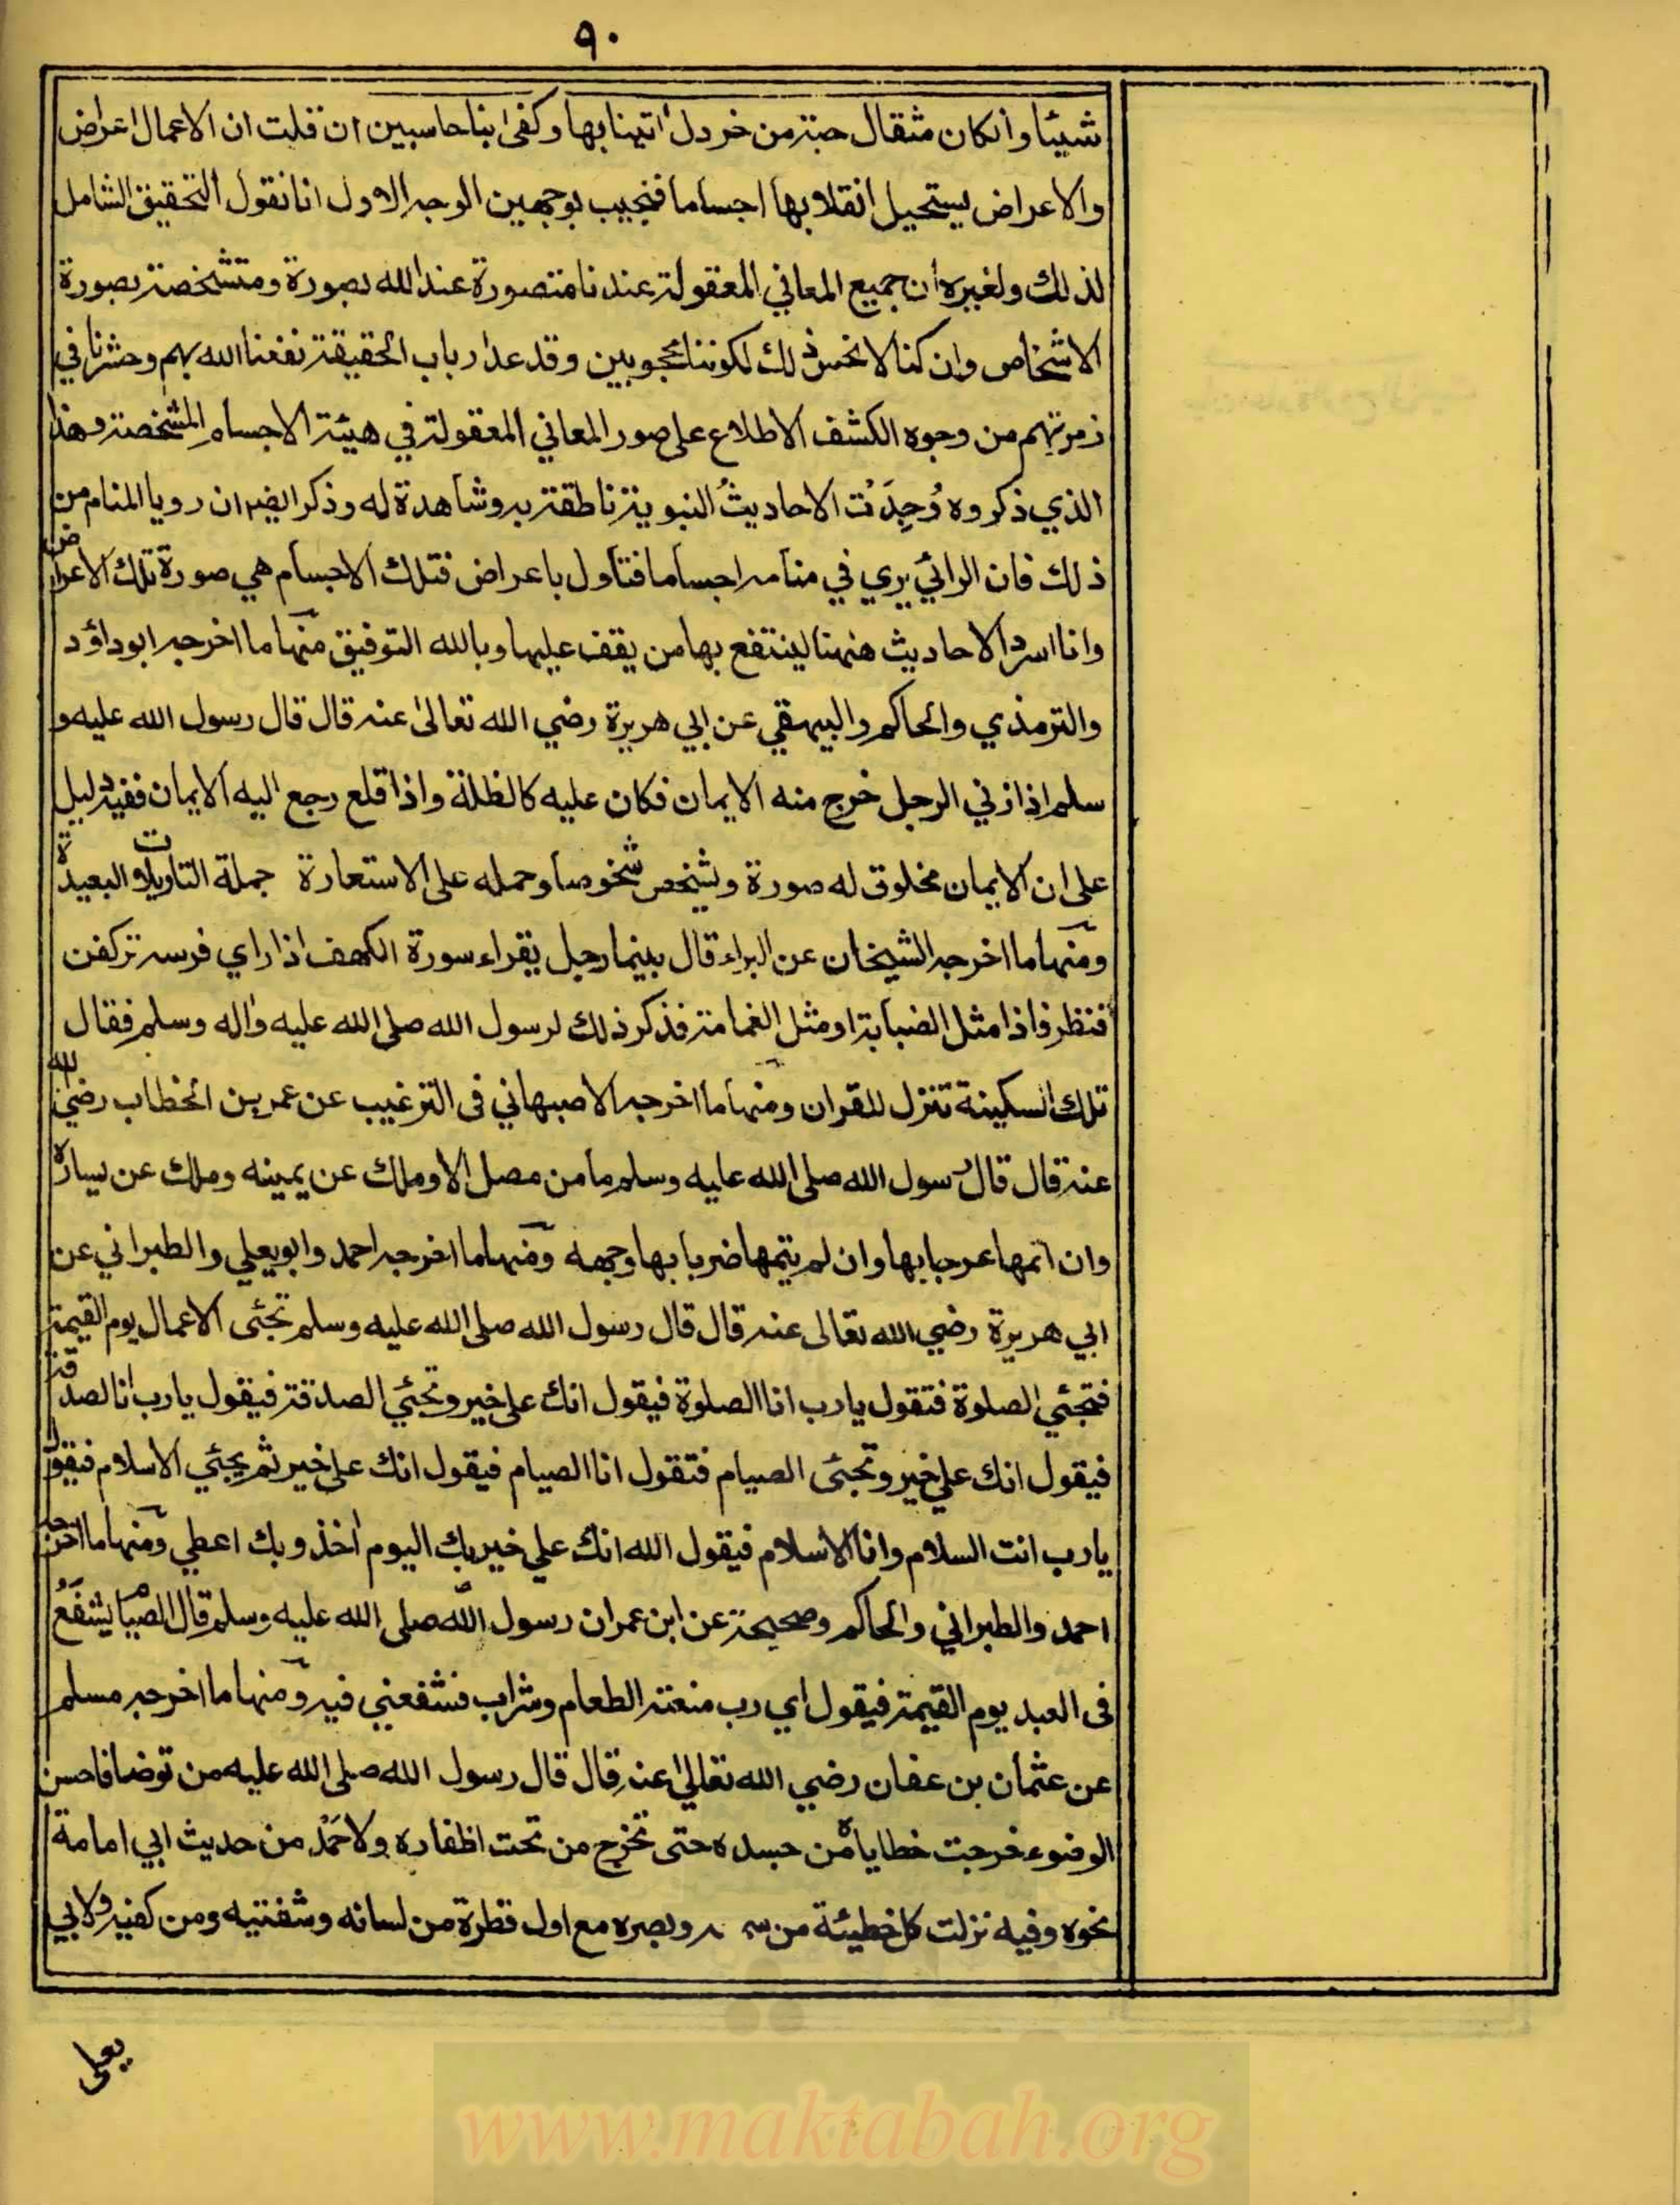 ٩٠
شيئا وانكان مثقال حبة من خردل اتينا بها وكفى بنا حاسبين ان قلت ان الاعمال اعراض
والاعراض يستحيل انقلابها اجساما فنجيب بوجهين الوجه الاول انا نقول التحقيق الشامل
لذلك ولغيره ان جميع المعاني المعقولة عندنا متصورة عند الله بصورة ومتشخصة بصورة
الاشخاص وان كنا لا نحس ذلك لكوننا محجوبين وقد عد ارباب الحقيقة نفعنا الله بهم وحشرنا في
زمرتهم من وجوه الكشف الاطلاع على صور المعاني المعقولة في هيئة الاجسام المشخصة وهذا
الذي ذكروه وُجِدَتْ الاحاديثُ النبوية ناطقة به وشاهدة له وذكر ايضا ان رويا المنام من
ذلك فان الرائي يري في منامه اجساما فتأول باعراض فتلك الاجسام هي صورة تلك الاعراض
وانا اسرد الاحاديث ههنا لينتفع بها من يقف عليها وبالله التوفيق منها ما اخرجه ابو داؤد
والترمذي والحاكم والبيهقي عن ابي هريرة رضي الله تعالى عنه قال قال رسول الله عليه و
سلم اذا زني الرجل خرج منه الايمان فكان عليه كالظلة واذا قلع رجع اليه الايمان ففيه دليل
على ان الايمان مخلوق له صورة ويشخص شخوصا وحمله على الاستعارة جملة التاويلات البعيدة
ومنها ما اخرجه الشيخان عن البراء قال بينما رجل يقراء سورة الكهف اذا راي فرسه تركض
فنظر فاذا مثل الضبابة او مثل الغمامة فذكر ذلك لرسول الله صلى الله عليه واله وسلم فقال
تلك السكينة تنزل للقران ومنها ما اخرجه الاصبهاني فى الترغيب عن عمر بن الخطاب رضي الله
عنه قال قال رسول الله صلى الله عليه وسلم ما من مصل الا وملك عن يمينه وملك عن يساره
وان اتمها عرجا بها وان لم يتمها ضربا بها وجهه ومنها ما اخرجه احمد وابو يعلي والطبراني عن
ابي هريرة رضي الله تعالى عنه قال قال رسول الله صلى الله عليه وسلم تجئى الاعمال يوم القيمة
فتجئي الصلوة فتقول يا رب انا الصلوة فيقول انك على خير وتجئي الصدقة فيقول يا رب انا الصدقة
فيقول انك علي خير وتجئى الصيام فتقول انا الصيام فيقول انك على خير ثم يجئي الاسلام فيقول
يا رب انت السلام وانا الاسلام فيقول الله انك علي خير بك اليوم اخذ وبك اعطي ومنها ما اخرجه
احمد والطبراني والحاكم وصححه عن ابن عمر ان رسول الله صلى الله عليه وسلم قال الصيام يشفع
فى العبد يوم القيمة فيقول اي رب منعته الطعام وشراب فشفعني فيه ومنها ما اخرجه مسلم
عن عثمان بن عفان رضي الله تعالى عنه قال قال رسول الله صلى الله عليه من توضا فاحسن
الوضوء خرجت خطاياه من جسده حتى تخرج من تحت اظفاره ولاحمد من حديث ابي امامة
نحوه وفيه نزلت كل خطيئة من وبصره مع اول قطرة من لسانه وشفتيه ومن كفيه ولابي
يعلى
www.maktabah.org